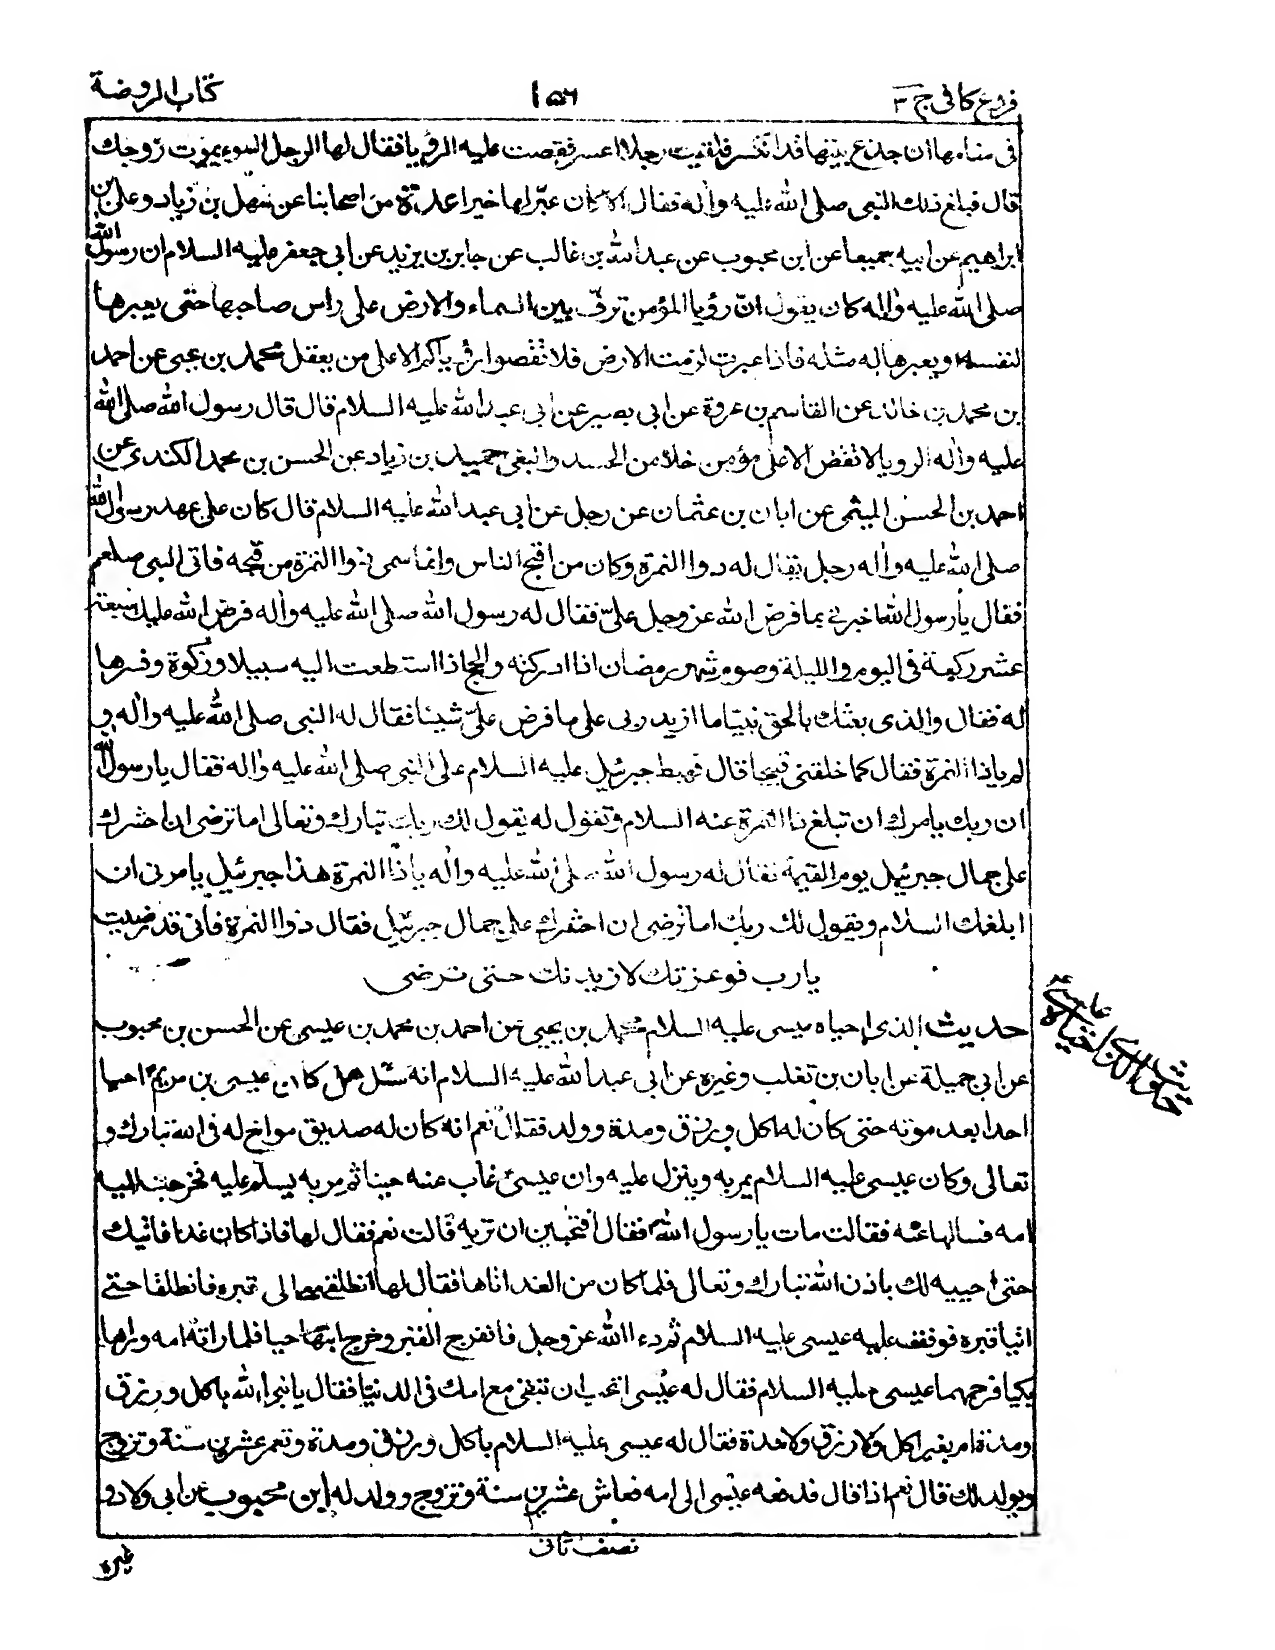 فروع کافی ج ٣
١٥٦
كتاب الروضة
فى منامها ان جذع بيتها قد انكسر فلقيت رجلا اعسر فقصت عليه الرؤيا فقال لها الرجل السوء يموت زوجك
قال فبلغ ذلك النبى صلى الله عليه واله فقال الا كان عبّر لها خيرا عدة من اصحابنا عن سهل بن زياد وعلى بن
ابراهيم عن ابيه جميعا عن ابن محبوب عن عبد الله بن غالب عن جابر بن يزيد عن ابى جعفر عليه السلام ان رسول الله
صلى الله عليه واله كان يقول انّ رؤيا المؤمن ترفّ بين السماء والارض على راس صاحبها حتى يعبرها
لنفسه او يعبرها له مثله فاذا عبرت لزمت الارض فلا تقصوا رؤياكم الا على من يعقل محمد بن يحيى عن احمد
بن محمد بن خالد عن القاسم بن عروة عن ابى بصير عن ابى عبد الله عليه السلام قال قال رسول الله صلى الله
عليه واله الرويا لا تقص الا على مؤمن خلا من الحسد والبغى حميد بن زياد عن الحسن بن محمد الكندى عن
احمد بن الحسن الميثمى عن ابان بن عثمان عن رجل عن ابى عبد الله عليه السلام قال كان على عهد رسول الله
صلى الله عليه واله رجل يقال له ذوا النمرة وكان من اقبح الناس وانما سمى ذوا النمرة من قبحه فاتى النبى صلعم
فقال يا رسول الله اخبرنى بما فرض الله عز وجل علىّ فقال له رسول الله صلى الله عليه واله فرض الله عليك سبعة
عشر ركعة فى اليوم والليلة وصوم شهر رمضان اذا ادركته والحج اذا استطعت اليه سبيلا وزكوة وفسرها
له فقال والذى بعثك بالحق نبيّا ما ازيد ربى على ما فرض علىّ شيئا فقال له النبى صلى الله عليه واله و
لم يا ذا النمرة فقال كما خلقنى قبيحا قال فهبط جبرئيل عليه السلام على النبى صلى الله عليه واله فقال يا رسول الله
ان ربك يامرك ان تبلغ ذا النمرة عنه السلام وتقول له يقول لك ربك تبارك وتعالى اما ترضى ان احشرك
على جمال جبرئيل يوم القيمة فقال له رسول الله صلى الله عليه واله يا ذا النمرة هذا جبرئيل يامرنى ان
ابلغك السلام ويقول لك ربك اما ترضى ان احشرك على جمال جبرئيل فقال ذوا النمرة فانى قد رضيت
يا رب فوعزتك لازيدنك حتى ترضى
حديث الذى احياه عيسى عليه السلام محمد بن يحيى عن احمد بن محمد بن عيسى عن الحسن بن محبوب
حديث الذى احياه عيسى ع
عن ابى جميلة عن ابان بن تغلب وغيره عن ابى عبد الله عليه السلام انه سئل هل كان عيسى بن مريم احيا
احدا بعد موته حتى كان له اكل ورزق ومدة وولد فقال نعم انه كان له صديق مواخ له فى الله تبارك و
تعالى وكان عيسى عليه السلام يمر به وينزل عليه وان عيسى غاب عنه حينا ثم مر به يسلم عليه فخرجت اليه
امه فسالها عنه فقالت مات يا رسول الله فقال افتحبين ان تريه قالت نعم فقال لها فاذا كان غدا فاتيك
حتى احييه لك باذن الله تبارك وتعالى فلما كان من الغد اتاها فقال لها انطلقى معى الى قبره فانطلقا حتى
اتيا قبره فوقف عليه عيسى عليه السلام ثم دعا الله عز وجل فانفرج القبر وخرج ابنها حيا فلما راته امه وراها
بكيا فرحمهما عيسى عليه السلام فقال له عيسى اتحب ان تبقى مع امك فى الدنيا فقال يا نبى الله باكل ورزق
ومدة ام بغير اكل ولا رزق ولا مدة فقال له عيسى عليه السلام باكل ورزق ومدة وتعمر عشرين سنة وتزوج
ويولد لك قال نعم اذا قال فدفعه عيسى الى امه فعاش عشرين سنة وتزوج وولد له ابن محبوب عن ابى ولاد و
نصف ثانى
غيره